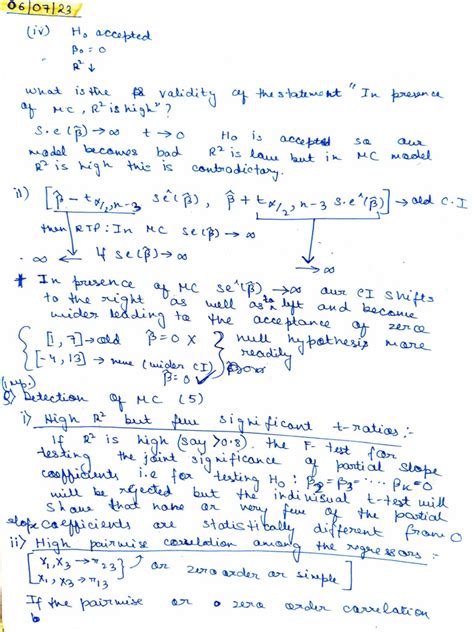 06/07/23
(iv) H₀ accepted
β₀ = 0
R² ↓
What is the validity of the statement "In presence
of MC, R² is high"?
S.e(β̂) → ∞ t → 0 H₀ is accepted so our
model becomes bad R² is low but in MC model
R² is high this is contradictory.
ii) [β̂ − t α/2, n-3 sê(β̂), β̂ + t α/2, n-3 s.ê(β̂)] → old C.I
then RTP: In MC se(β̂) → ∞
-∞ ← If se(β̂) → ∞ → ∞
* In presence of MC sê(β̂) → ∞ our CI shifts
to the right as well as to left and become
wider leading to the acceptance of zero
{ [1, 7] → old β̂ = 0 X } null hypothesis more
[-4, 13] → new (wider CI) readily
β̂ = 0 ✓
(imp.)
Q) Detection of MC (5)
i) High R² but few significant t-ratios :-
If R² is high (say > 0.8). the F-test for
testing the joint significance of partial slope
coefficients i.e for testing H₀ : β₂ = β₃ = ---- βk = 0
will be rejected but the indiviusal t-test will
show that none or very few of the partial
slope coefficients are statistically different from 0
ii) High pairwise correlation among the regressors :-
[x₁, x₃ → r₂₃ } or zero order or simple]
x₁, x₃ → r₁₃
If the pairwise or zero order correlation